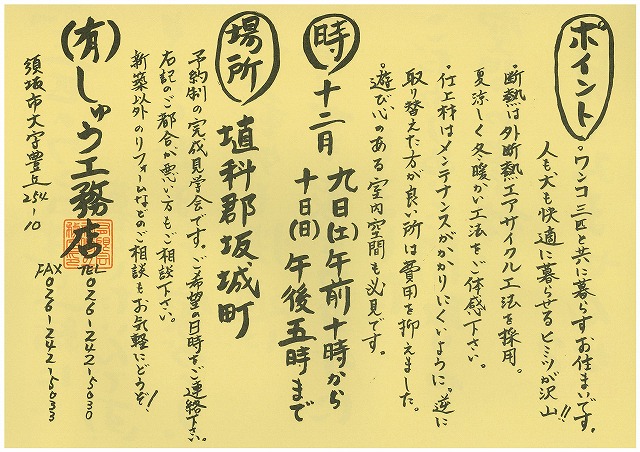 ポイント
・ワンコ三匹と共に暮らすお住まいです。
人も犬も快適に暮らせるヒミツが沢山!!
・断熱は外断熱エアサイクル工法を採用。
夏涼しく冬暖かい工法をご体感下さい。
・仕上材はメンテナンスがかかりにくいように。逆に
取り替えた方が良い所は費用を抑えました。
・遊び心のある室内空間も必見です。
時
十二月
九日(土)午前十時から
十日(日)午後五時まで
場所
埴科郡坂城町
予約制の完成見学会です。ご希望の日時をご連絡下さい。
右記のご都合が悪い方もご相談下さい。
新築以外のリフォームなどのご相談もお気軽にどうぞ!
(有)しゅう工務店
須坂市大字豊丘254-10
TEL 026-242-5030
FAX 026-242-5033